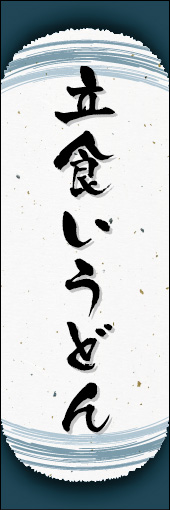 立食いうどん